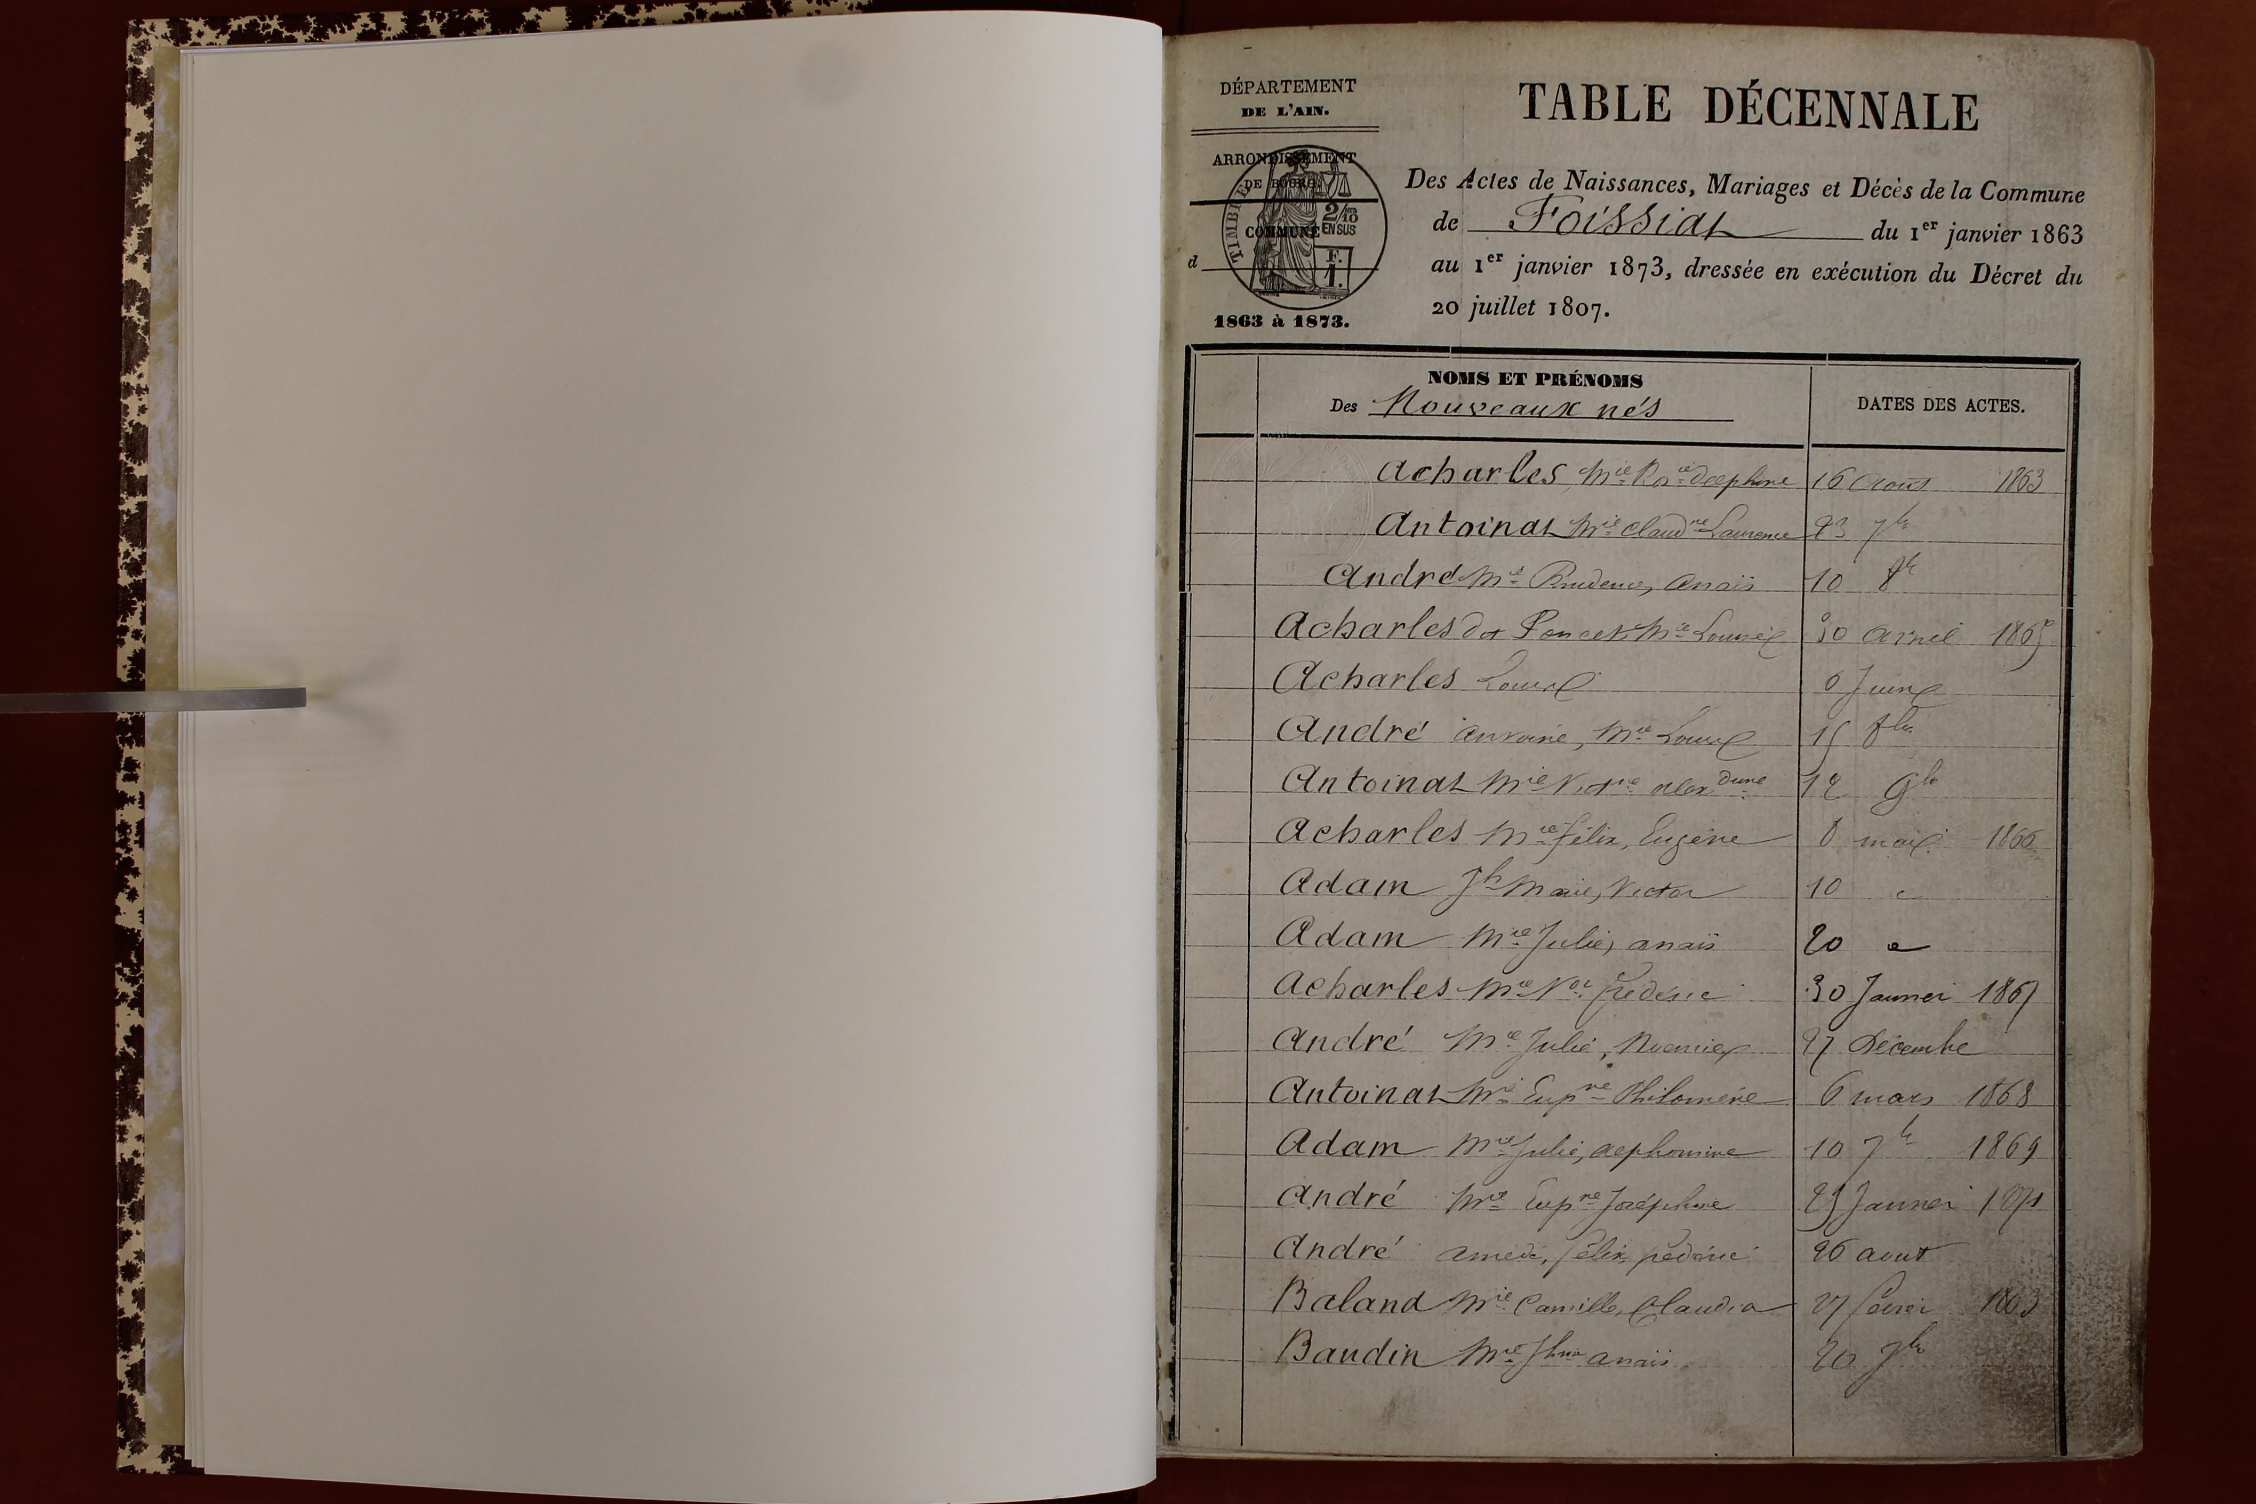 DÉPARTEMENT
DE L'AIN.
ARRONDISSEMENT
DE BOURG.
TIMBRE
2/10
EN SUS
COMMUNE
F.
1.
d
1863 à 1873.
TABLE DÉCENNALE
Des Actes de Naissances, Mariages et Décès de la Commune
de Foissiat du 1er janvier 1863
au 1er janvier 1873, dressée en exécution du Décret du
20 juillet 1807.
NOMS ET PRÉNOMS
Des Nouveaux nés
DATES DES ACTES.
Acharles Mie 16 Aout 1863
Antoinat Mie Claudne Laurence 23 7bre
André Mie Prudence, Anaïs 10 8bre
Acharles dot Poncet Mie Louise 30 Avril 1865
Acharles Louise Juin
André Antoine, Mie Louis 15 8bre
Antoinat Mie Vict 12 9bre
Acharles Mie Félix, Eugène 8 mai 1866
Adam Jh Marie, Victor 10
Adam Mie Julie, anaïs 20
Acharles Mie Vor Frédéric 30 Janvier 1867
André Mie Julie, Noemie 27 Décembre
Antoinat Mie Eupne Philomène 6 mars 1868
Adam Mie Julie, 10 7bre 1869
André Mie Eupne Joséphine 25 Janvier 1871
André Amédé, Félix, frédéric 26 aout
Baland Mie Camille, Claudia 27 février 1863
Baudin Mie Jhne anaïs 20 7bre